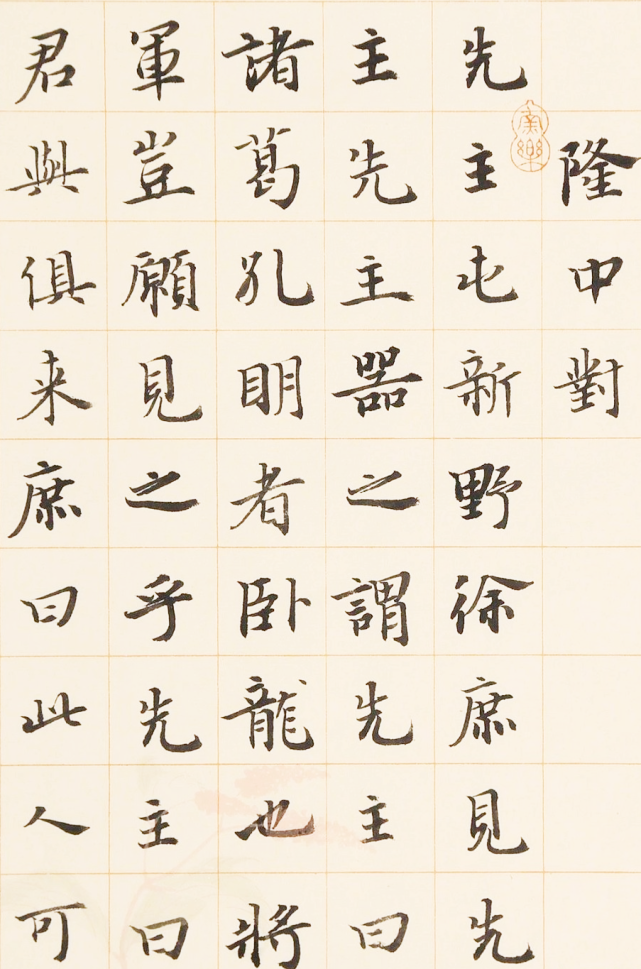 隆中對
先主屯新野徐庶見先
主先主器之謂先主曰
諸葛孔明者卧龍也將
軍豈願見之乎先主曰
君與俱来庶曰此人可